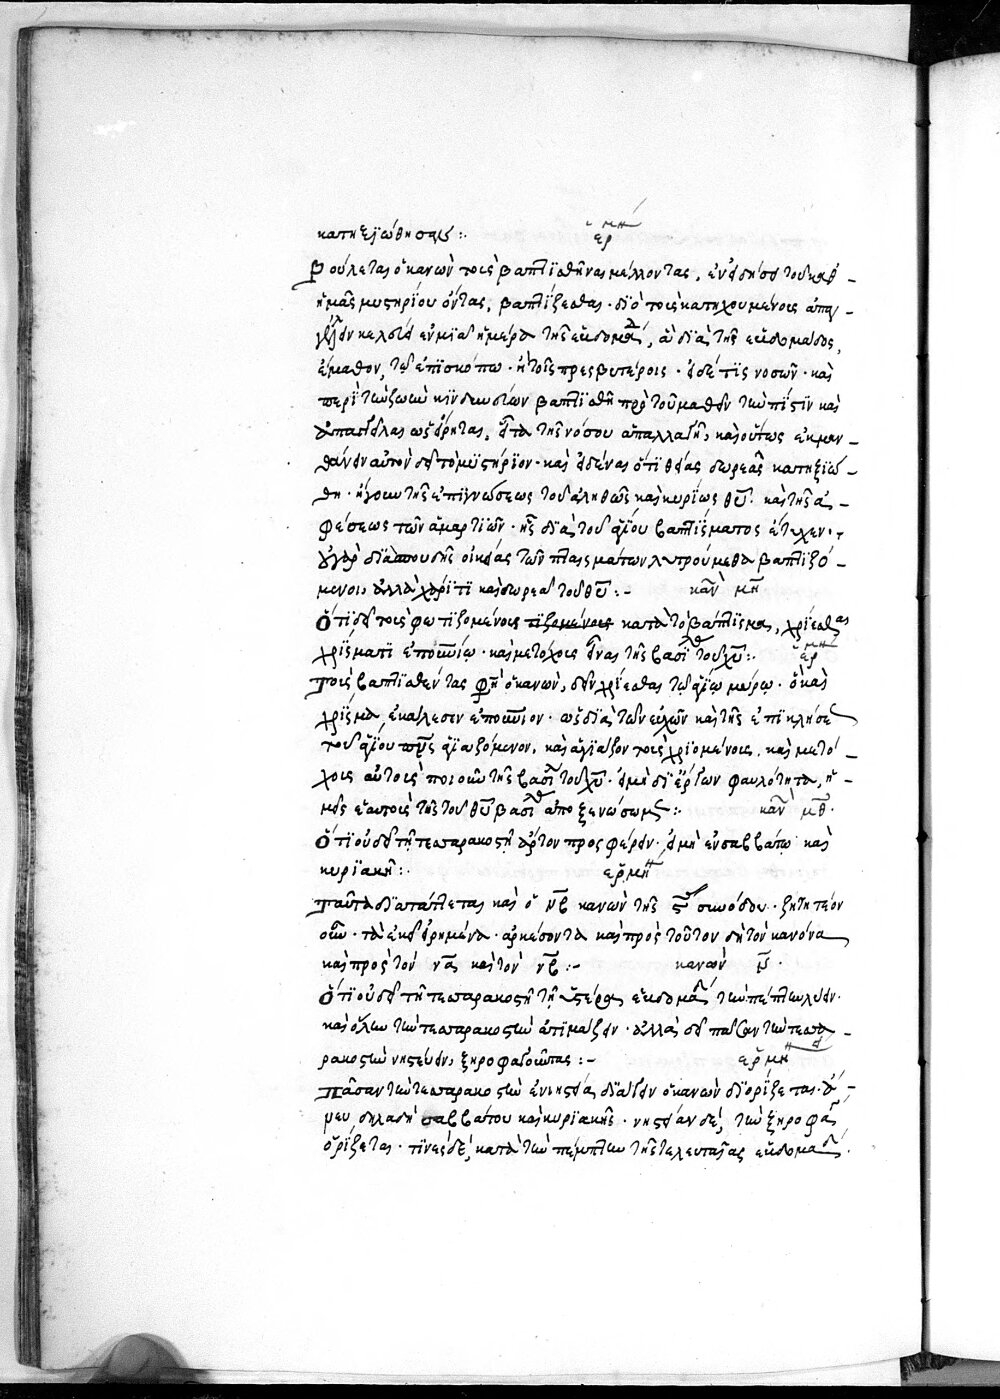 κατηξιώθησαν :. ἑρμη
Βούλεται ὁ κανὼν τοὺς βαπτισθῆναι μέλλοντας, ἐν εἰδήσει τοῦ καθ' –
ἡμᾶς μυστηρίου ὄντας, βαπτίζεσθαι · διὸ τοὺς κατηχουμένους ἀπαγ –
γέλλειν κελεύει ἐν μιᾷ ἡμέρᾳ τῆς ἑβδομάδ, ἃ διὰ τῆς ἑβδομάδος,
ἔμαθον, τῷ ἐπισκόπῳ · ἢ τοῖς πρεσβυτέροις · εἰ δέ τις νοσῶν · καὶ
περὶ τὴν ζωὴν κινδυνεύων βαπτισθῇ πρὸ τοῦ μαθεῖν τὴν πίστιν καὶ
εἶτα τῆς νόσου ἀπαλλαγῇ, καὶ οὕτως ἐκμαν –
θάνειν αὐτὸν δεῖ τὸ μυστήριον · καὶ εἰδέναι ὅτι θείας δωρεᾶς κατηξιώ –
θη · ἤγουν τῆς ἐπιγνώσεως τοῦ ἀληθῶς καὶ κυρίως θυ · καὶ τῆς ἀ –
φέσεως τῶν ἁμαρτιῶν · ἧς διὰ τοῦ ἁγίου βαπτίσματος ἔτυχεν ·
οὐ γὰρ διὰ σπουδῆς οἰκείας τῶν πταισμάτων λυτρούμεθα βαπτιζό –
μενοι, ἀλλὰ χάριτι καὶ δωρεᾷ τοῦ θυ :– καν μη
Ὅτι δεῖ τοὺς φωτιζομένους τιζομένους κατὰ τὸ βάπτισμα, χρίεσθαι
χρίσματι ἐπουνίῳ · καὶ μετόχους εἶναι τῆς βασι τοῦ χυ :. ἑρμη
Τοὺς βαπτισθέντας φη ὁ κανὼν, δεῖν χρίεσθαι τῷ ἁγίῳ μύρῳ · ὃ καὶ
χρίσμα ἐκάλεσεν ἐπουνιον · ὡς διὰ τῶν εὐχῶν καὶ τῆς ἐπικλήσε
τοῦ ἁγίου πνς ἁγιαζόμενον, καὶ ἁγιάζον τοὺς χριομένους, καὶ μετό –
χους αὐτοὺς ποιοῦν τῆς βασι τοῦ χυ · εἰ μὴ δι' ἔργων φαυλότητα, ἡ –
μεῖς ἑαυτοὺς τῆς τοῦ θυ βασι ἀποξενώσωμεν :· καν μθ ·
Ὅτι οὐ δεῖ τῇ τεσσαρακοστῇ ἄρτον προσφέρειν · εἰ μὴ ἐν σαββάτῳ καὶ
κυριακῇ :. ἑρμη
Ταῦτα διατάττεται καὶ ὁ νβ κανὼν τῆς ϛ συνόδου · ζητητέον
οὖν · τὰ ἐκεῖ εἰρημένα · ἀρκέσοντα καὶ πρὸς τοῦτον δὴ τὸν κανόνα
καὶ πρὸς τὸν να καὶ τὸν νβ :– κανων ν ·
Ὅτι οὐ δεῖ τῇ τεσσαρακοστῇ τῇ ὑστέρᾳ ἑβδομά τὴν πέμπτην λύειν ·
καὶ ὅλην τὴν τεσσαρακοστὴν ἀτιμάζειν · ἀλλὰ δεῖ πᾶσαν τὴν τεσσα –
ρακοστὴν νηστεύειν, ξηροφαγοῦντας :– ἑρμη
Πᾶσαν τὴν τεσσαρακοστὴν ἐν νηστείᾳ διάγειν ὁ κανὼν διορίζεται · ἄ –
νευ δηλαδὴ σαββάτου καὶ κυριακῆς · νηστείαν δὲ, τὴν ξηροφαγ
ὁρίζεται · τινὲς δὲ, κατὰ τὴν πέμπτην τῆς τελευταίας ἑβδομάδ ·